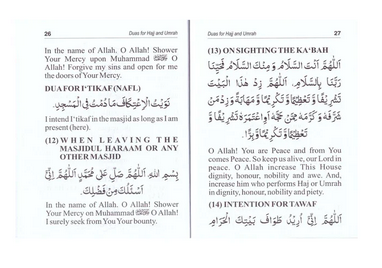 26
Duas for Hajj and Umrah
In the name of Allah. O Allah! Shower
Your Mercy upon Muhammad ﷺ O
Allah! Forgive my sins and open for me
the doors of Your Mercy.
DUA FOR I'TIKAF (NAFL)
نَوَيْتُ الْاِعْتِكَافَ مَا دُمْتُ فِي الْمَسْجِدِ.
I intend I'tikaf in the masjid as long as I am
present (here).
(12) WHEN LEAVING THE
MASJIDUL HARAAM OR ANY
OTHER MASJID
بِسْمِ اللهِ اَللّٰهُمَّ صَلِّ عَلٰى مُحَمَّدٍ اَللّٰهُمَّ اِنِّيْ
اَسْئَلُكَ مِنْ فَضْلِكَ.
In the name of Allah. O Allah! Shower
Your Mercy on Muhammad ﷺ O Allah!
I surely seek from You Your bounty.
Duas for Hajj and Umrah
27
(13) ON SIGHTING THE KA'BAH
اَللّٰهُمَّ اَنْتَ السَّلَامُ وَمِنْكَ السَّلَامُ فَحَيِّنَا
رَبَّنَا بِالسَّلَامِ. اَللّٰهُمَّ زِدْ هٰذَا الْبَيْتَ
تَشْرِيْفًا وَّتَعْظِيْمًا وَّتَكْرِيْمًا وَّمَهَابَةً وَزِدْ مَنْ
شَرَّفَهُ وَكَرَّمَهُ مِمَّنْ حَجَّهُ اَوِاعْتَمَرَهُ تَشْرِيْفًا وَّ
تَعْظِيْمًا وَّتَكْرِيْمًا وَّبِرًّا.
O Allah! You are Peace and from You
comes Peace. So keep us alive, our Lord in
peace. O Allah increase This House
dignity, honour, nobility and awe. And,
increase him who performs Haj or Umrah
in dignity, honour, nobility and piety.
(14) INTENTION FOR TAWAF
اَللّٰهُمَّ اِنِّيْ اُرِيْدُ طَوَافَ بَيْتِكَ الْحَرَامِ